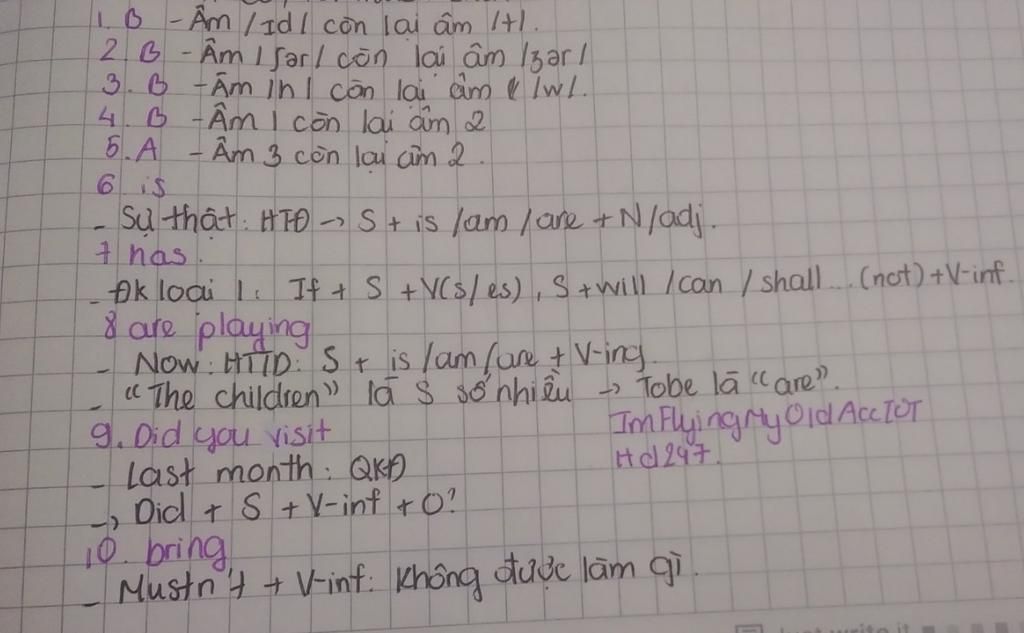 1. B - Âm /ɪd/ còn lại âm /t/.
2 B - Âm /ʃər/ còn lại âm /ʒər/
3. B - Âm /h/ còn lại âm /w/.
4. B - Âm 1 còn lại âm 2
5. A - Âm 3 còn lại âm 2.
6 is
- Sự thật: HTĐ → S + is /am /are + N/adj.
7 has.
- Đk loại 1: If + S + V(s/es), S + will /can / shall...(not) + V-inf.
8 are playing
- Now: HTTD: S + is /am /are + V-ing.
- "The children" là S số nhiều → Tobe là "are".
9. Did you visit
ImFlyingMyOldAccIOT
Hd247.
- Last month: QKĐ
→ Did + S + V-inf + O?
10. bring
- Mustn't + V-inf: Không được làm gì.